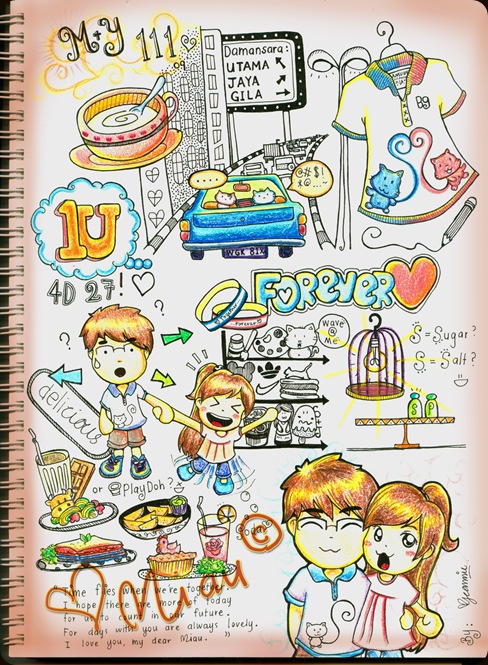 M+Y 111
Damansara:
UTAMA
JAYA
GILA
@#$!
*@...
Bg
1U
WGK 81X
4D 27!
FOREVER
? ?
wave @ me
S = Sugar?
S = Salt?
S P
delicious
or @PlayDoh?
Soda
© Miau
"Time flies when we're together.
I hope there are more today
for us to count future.
For days with you are always lovely.
I love you, my dear Miau. "
By: Jeannie